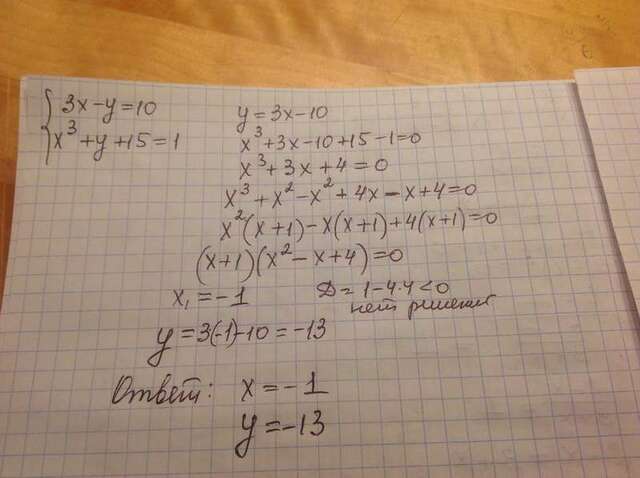 3x-y=10
x³+y+15=1
y=3x-10
x³+3x-10+15-1=0
x³+3x+4=0
x³+x²-x²+4x-x+4=0
x²(x+1)-x(x+1)+4(x+1)=0
(x+1)(x²-x+4)=0
x₁=-1
D=1-4·4<0
нет решения
y=3(-1)-10=-13
Ответ: x=-1
y=-13